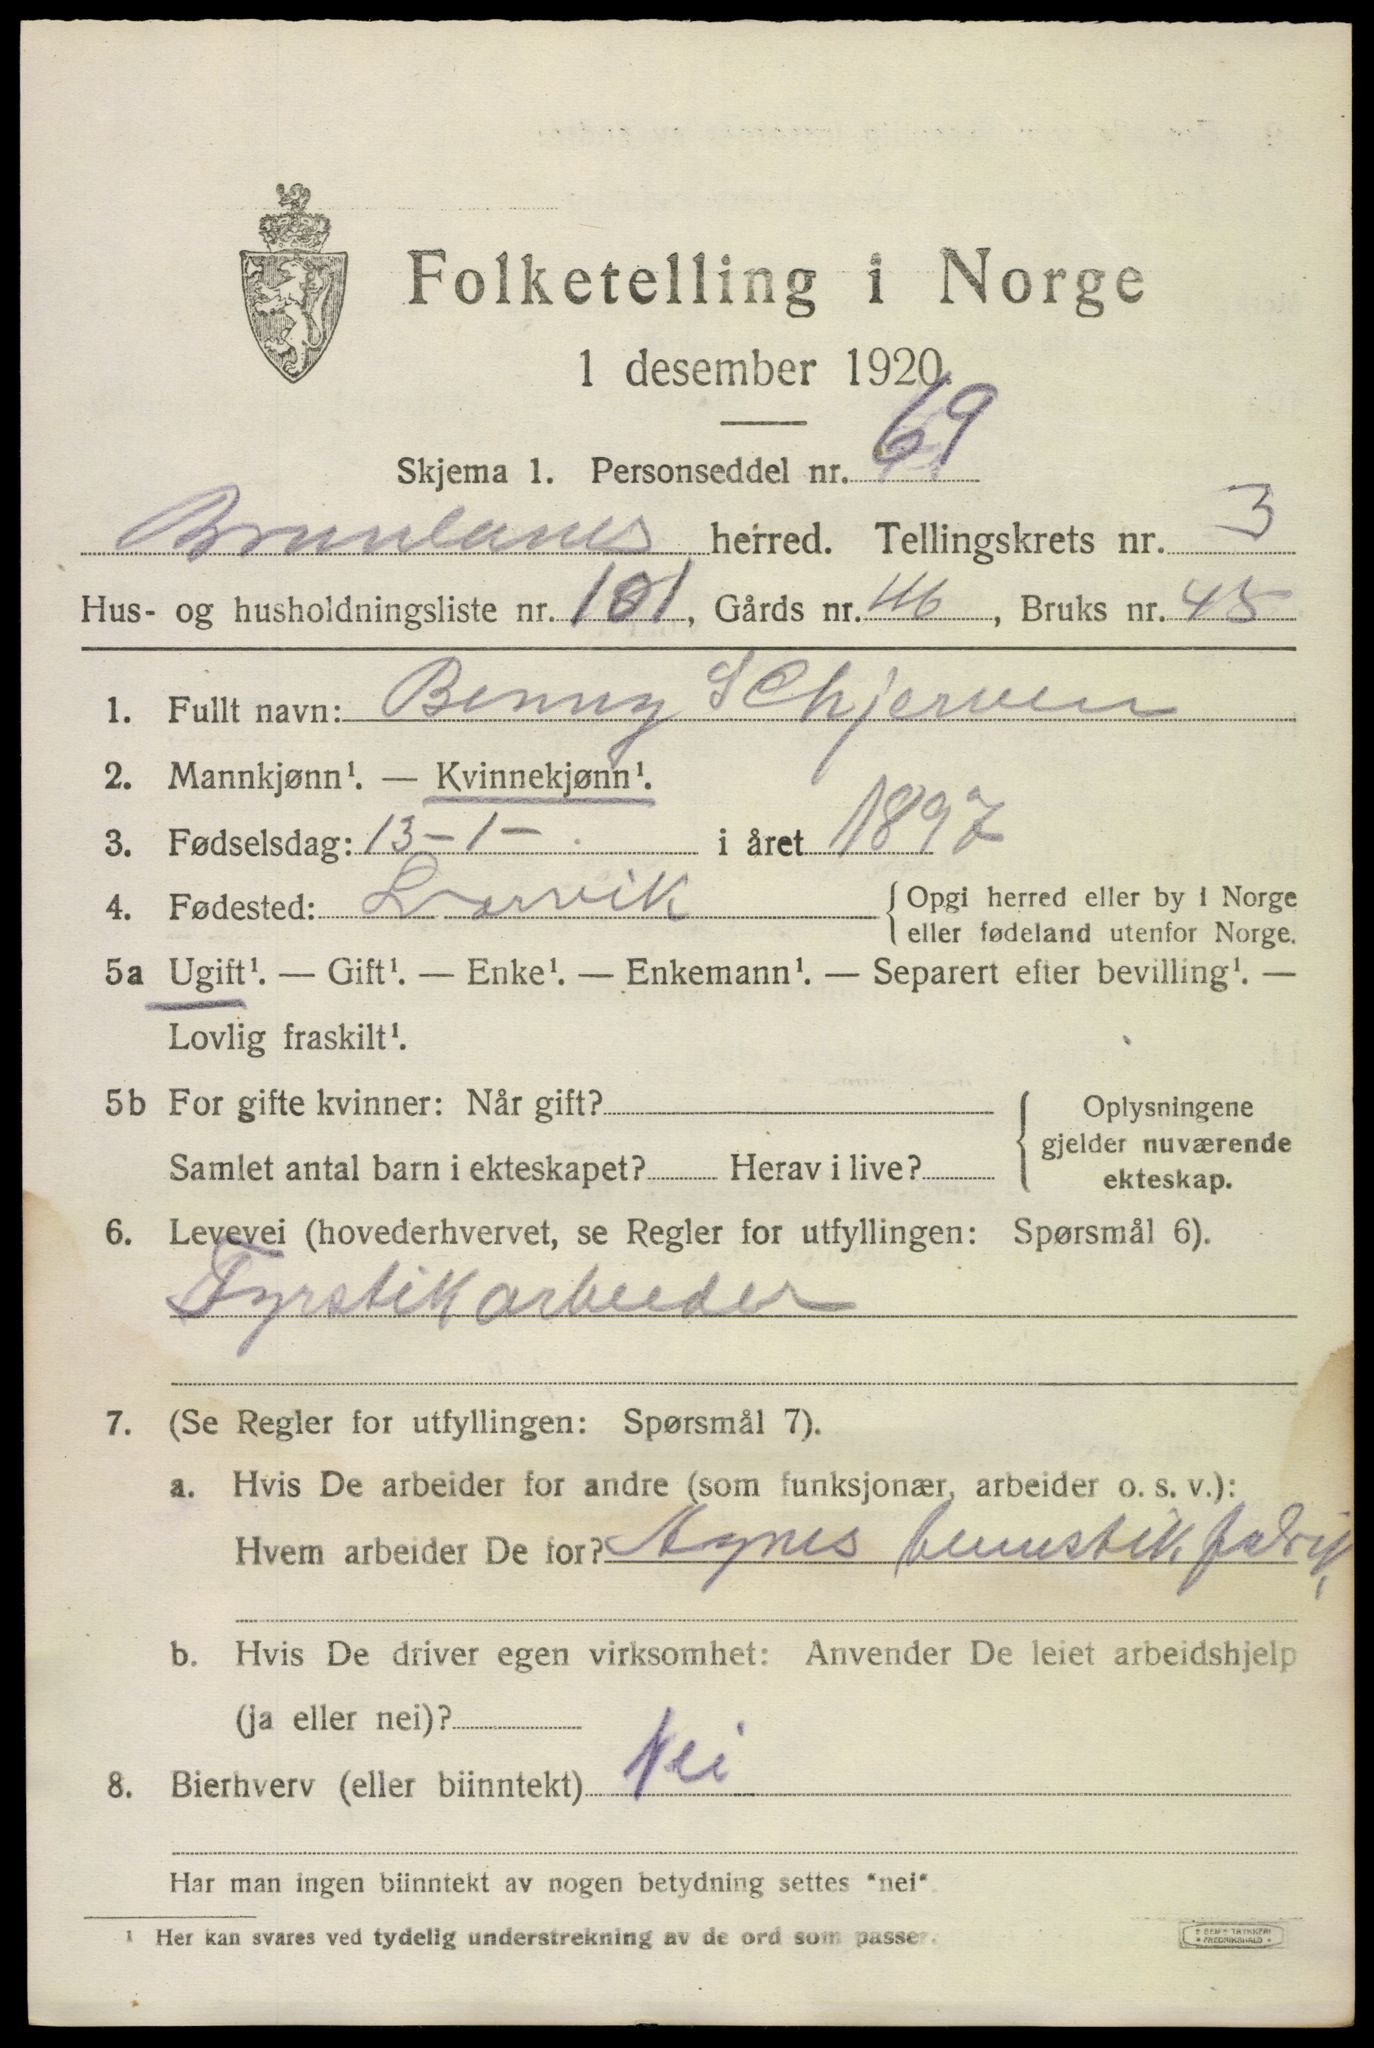 Folketelling i Norge
1 desember 1920.
Skjema 1. Personseddel nr. 69
Brunlanes herred. Tellingskrets nr. 3
Hus- og husholdningsliste nr. 101, Gårds nr. 46, Bruks nr. 45
1. Fullt navn: Benny Schjerven
2. Mannkjønn¹. — Kvinnekjønn¹.
3. Fødselsdag: 13-1- i året 1897
4. Fødested: Larvik {Opgi herred eller by i Norge
eller fødeland utenfor Norge.
5a Ugift¹. — Gift¹. — Enke¹. — Enkemann¹. — Separert efter bevilling¹. —
Lovlig fraskilt¹.
5b For gifte kvinner: Når gift? { Oplysningene
gjelder nuværende
Samlet antal barn i ekteskapet? Herav i live?
ekteskap.
6. Levevei (hovederhvervet, se Regler for utfyllingen: Spørsmål 6).
Fyrstikarbeider
7. (Se Regler for utfyllingen: Spørsmål 7).
a. Hvis De arbeider for andre (som funksjonær, arbeider o. s. v.):
Hvem arbeider De for? Agnes fabrik
b. Hvis De driver egen virksomhet: Anvender De leiet arbeidshjelp
(ja eller nei)?
8. Bierhverv (eller biinntekt) Nei
Har man ingen biinntekt av nogen betydning settes "nei".
¹ Her kan svares ved tydelig understrekning av de ord som passer.
TRYKKERI
FREDRIKSHALD